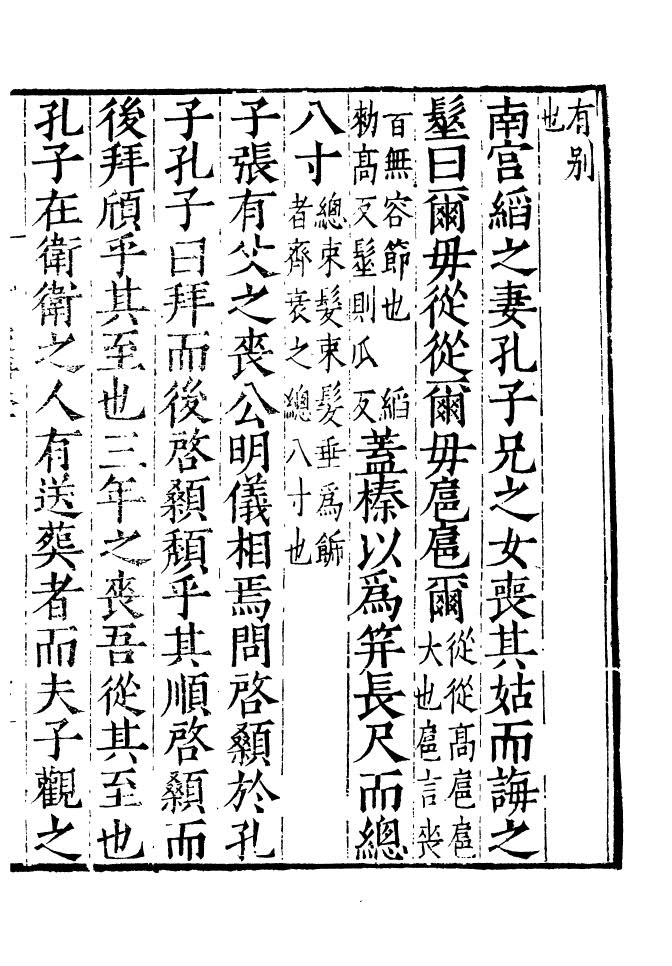 有别也
南宫縚之妻孔子兄之女喪其姑而誨之
髽曰爾毋從從爾毋扈扈爾從從髙扈扈大也扈言喪
百無容節也縚勑髙反髽則瓜反蓋榛以爲筓長尺而總
八寸總束髮束髮垂爲餙者齊衰之總八寸也
子張有父之喪公明儀相焉問啓顙於孔
子孔子曰拜而後啓顙頽乎其順啓顙而
後拜頎乎其至也三年之喪吾從其至也
孔子在衛衛之人有送葬者而夫子觀之